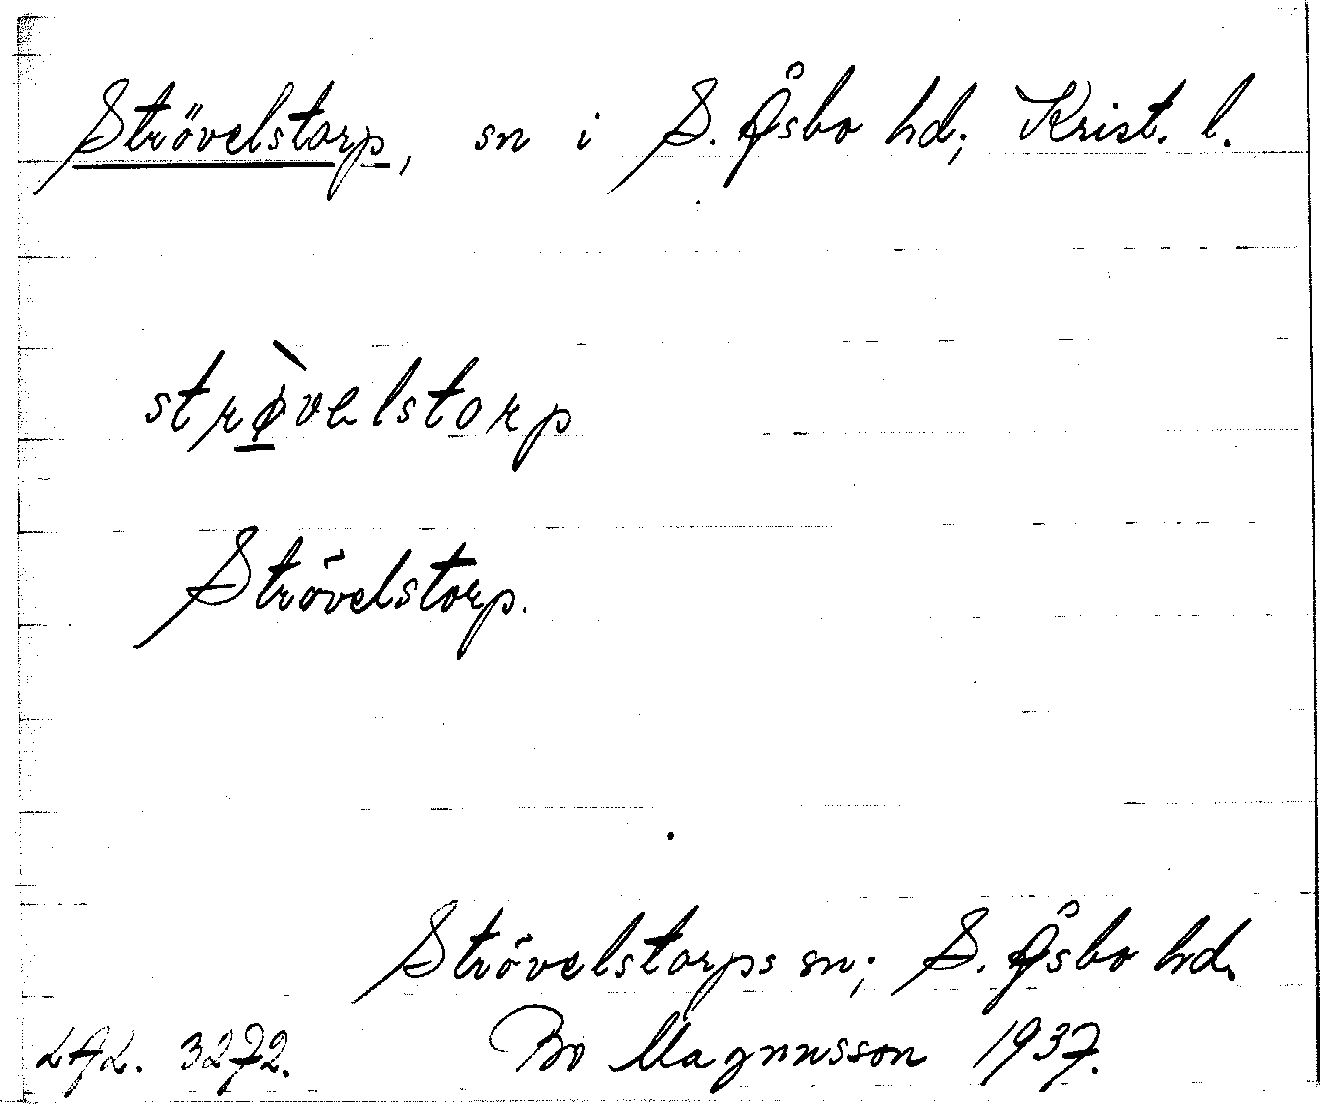 Strövelstorp, sn i S. Åsbo hd; Krist. l.
strø̀velstorp
Strövelstorp.
Strövelstorps sn; S. Åsbo hd.
LAL. 3272. Bo Magnusson 1937.